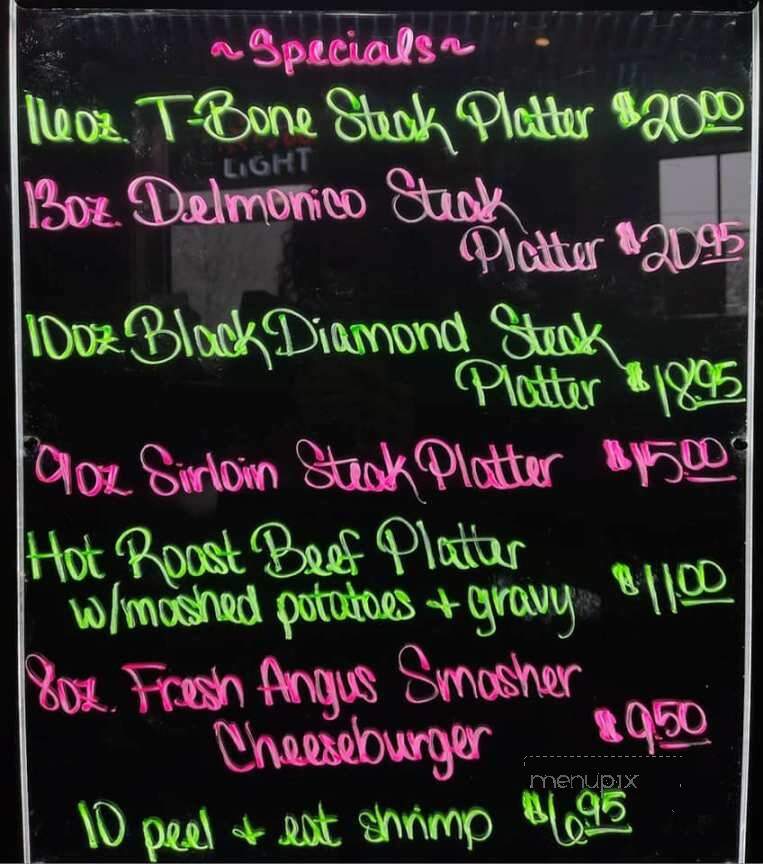 ~Specials~
16oz. T-Bone Steak Platter $20.00
LIGHT
13oz. Delmonico Steak
Platter $20.95
10oz Black Diamond Steak
Platter $18.95
9oz Sirloin Steak Platter $15.00
Hot Roast Beef Platter
w/mashed potatoes + gravy $11.00
8oz. Fresh Angus Smasher
Cheeseburger $9.50
menupix
10 peel + eat shrimp $6.95